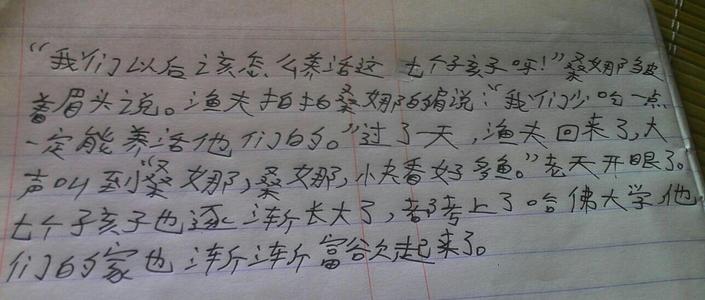 “我们以后该怎么养活这七个孩子呀!”桑娜皱
着眉头说。渔夫拍拍桑娜的肩说:“我们少吃一点
一定能养活他们的。”过了一天,渔夫回来了,大
声叫到“桑娜,桑娜,快看好多鱼。”老天开眼了。
七个孩子也逐渐长大了,都考上了哈佛大学,他
们的家也渐渐富裕起来了。